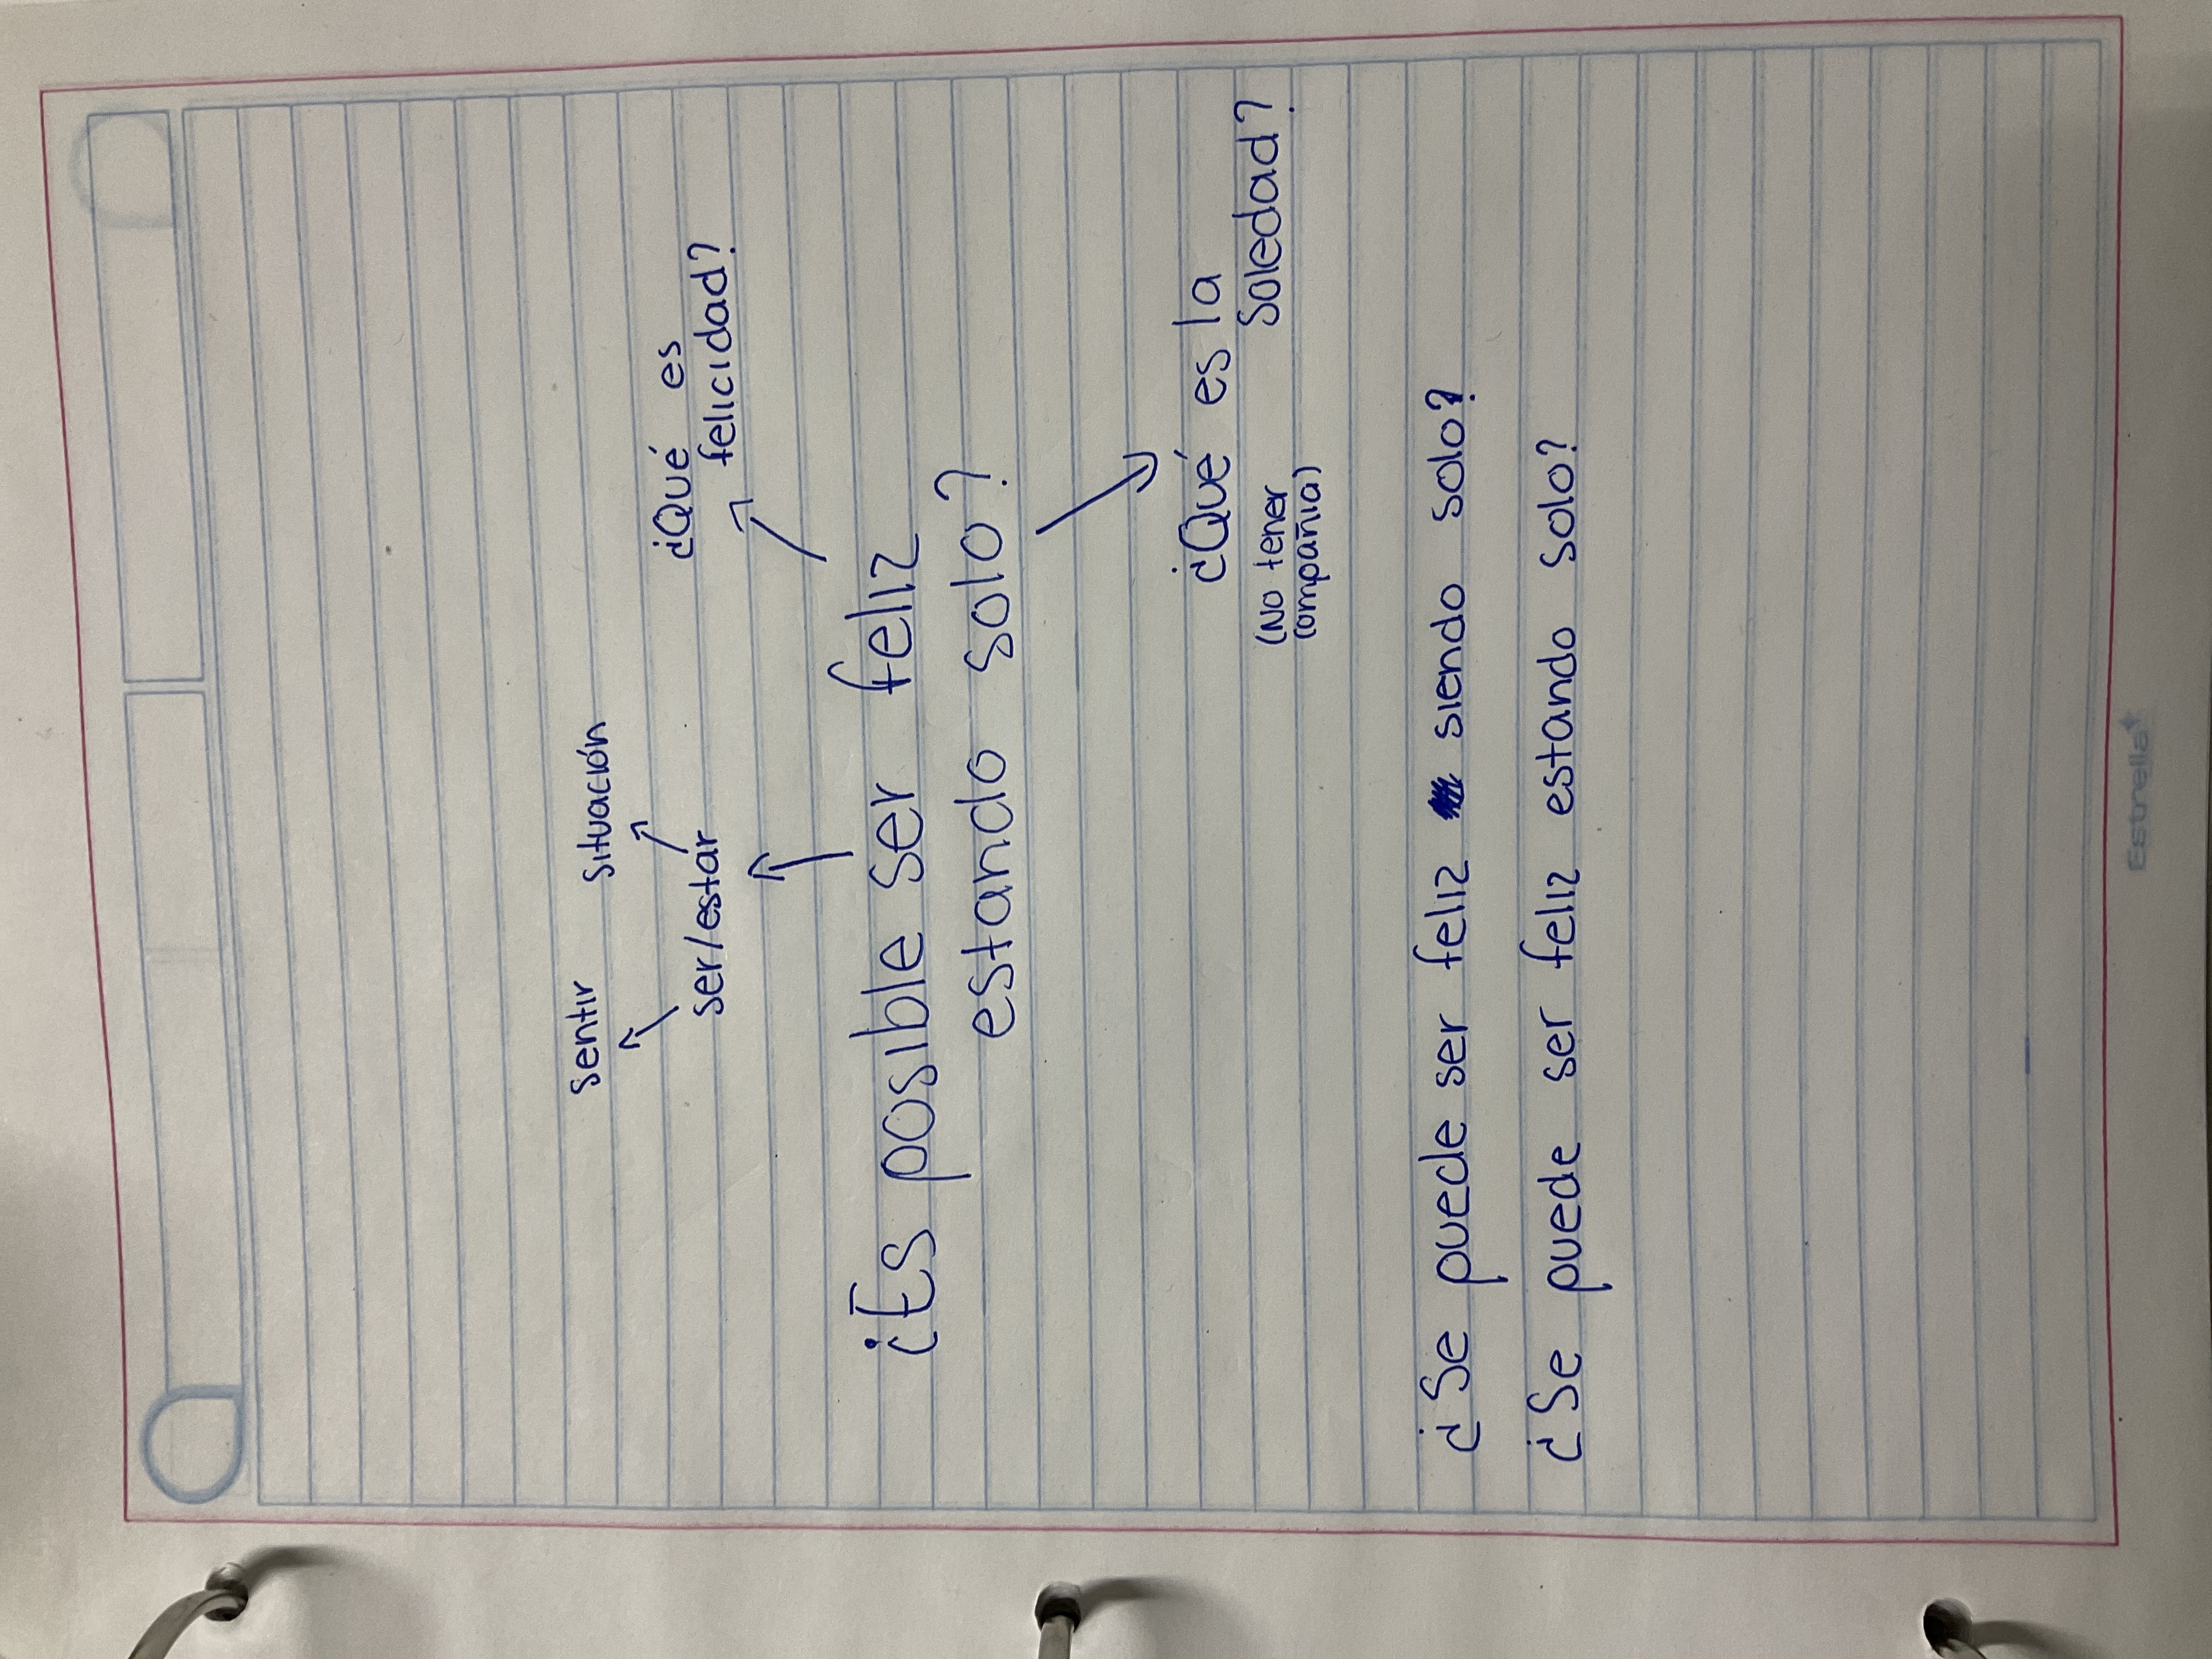 sentir situación
ser/estar
¿Qué es
felicidad?
¿Es posible ser feliz
estando solo?
¿Qué es la
soledad?
(No tener
compañia)
¿Se puede ser feliz siendo solo?
¿Se puede ser feliz estando solo?
Estrella